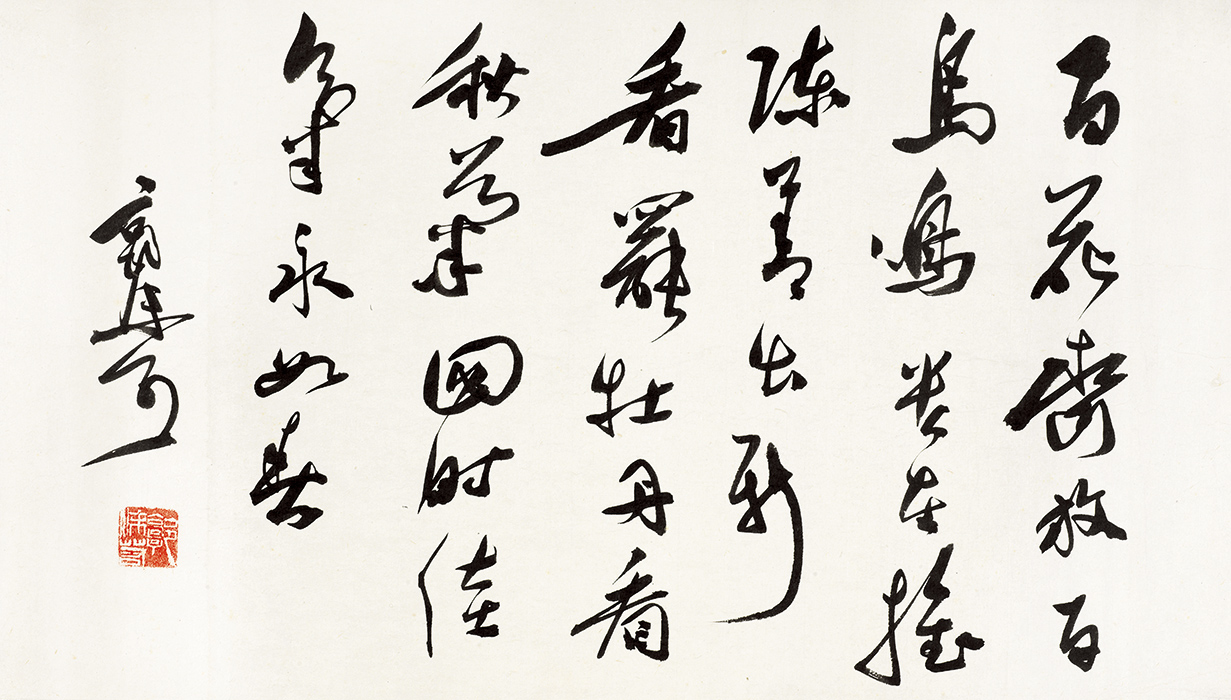 百花齊放百
鳥鳴貴在推
陳善出新
看罷牡丹看
秋菊四時佳
氣永如春
郭沫若
郭沫若